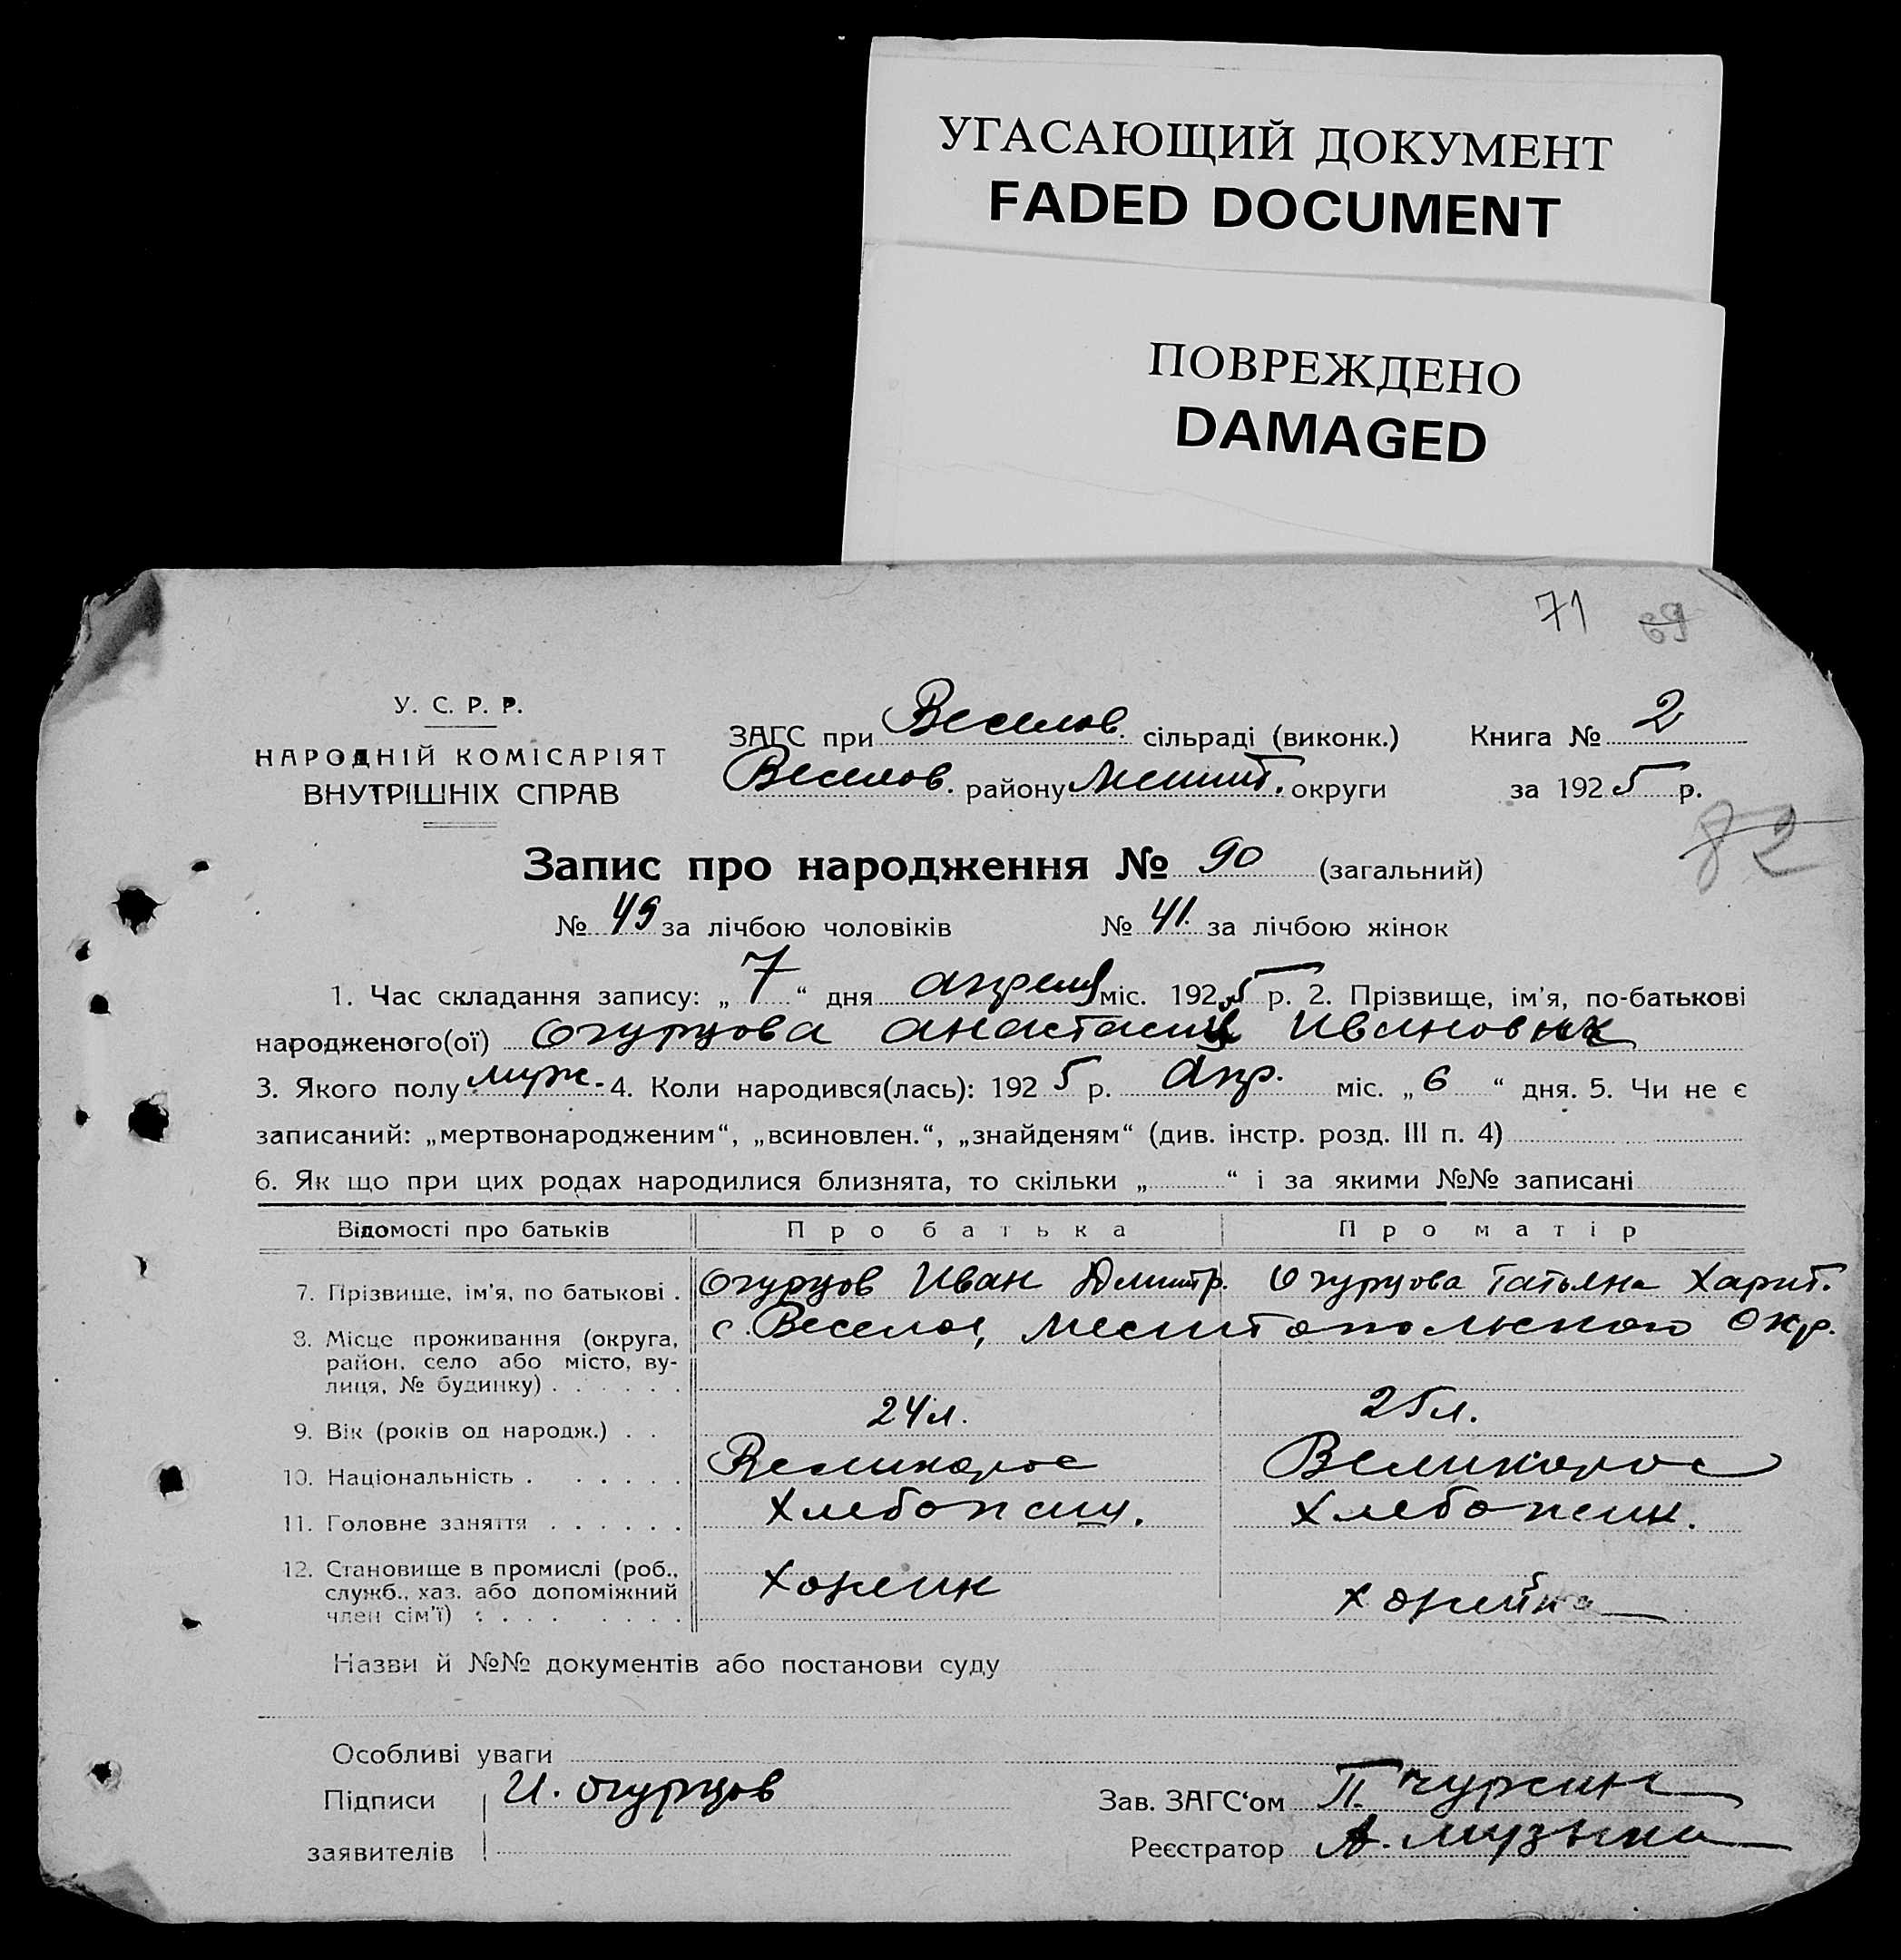 УГАСАЮЩИЙ ДОКУМЕНТ
FADED DOCUMENT
ПОВРЕЖДЕНО
DAMAGED
71 69
У. С. Р. Р.
НАРОДНІЙ КОМІСАРІЯТ
ВНУТРІШНІХ СПРАВ
ЗАГС при Веселов. сільраді (виконк.) Книга № 2
Веселов. району Мелит. округи за 1925 р.
82
Запис про народження № 90 (загальний)
№ 49 за лічбою чоловіків № 41. за лічбою жінок
1. Час складання запису: „ 7 “ дня апреля міс. 1925 р. 2. Прізвище, ім'я, по-батькові
народженого(ої) Огурцова Анастасия Ивановна
3. Якого полу муж. 4. Коли народився(лась): 1925 р. Апр. міс. „ 6 “ дня. 5. Чи не є
записаний: „мертвонародженим“, „всиновлен.“, „знайденям“ (див. інстр. розд. III п. 4)
6. Як що при цих родах народилися близнята, то скільки „ “ і за якими №№ записані
Відомості про батьків Про батька Про матір
7. Прізвище, ім'я, по батькові . Огурцов Иван Дмитр. Огурцова Татьяна Харит.
8. Місце проживання (округа, район, село або місто, вулиця, № будинку) . . . . . . с. Веселое, Мелитопольского Окр.
9. Вік (років од народж.) . . 24 л. 25 л.
10. Національність . . . . . . Великорос Великорос
11. Головне заняття . . . . . . Хлебопаш. Хлебопашк.
12. Становище в промислі (роб., служб., хаз. або допоміжний член сім'ї) : . . . . . . .
Назви й №№ документів або постанови суду
Особливі уваги
Підписи И. Огурцов Зав. ЗАГС‘ом П.
заявителів Реєстратор А. Музыка